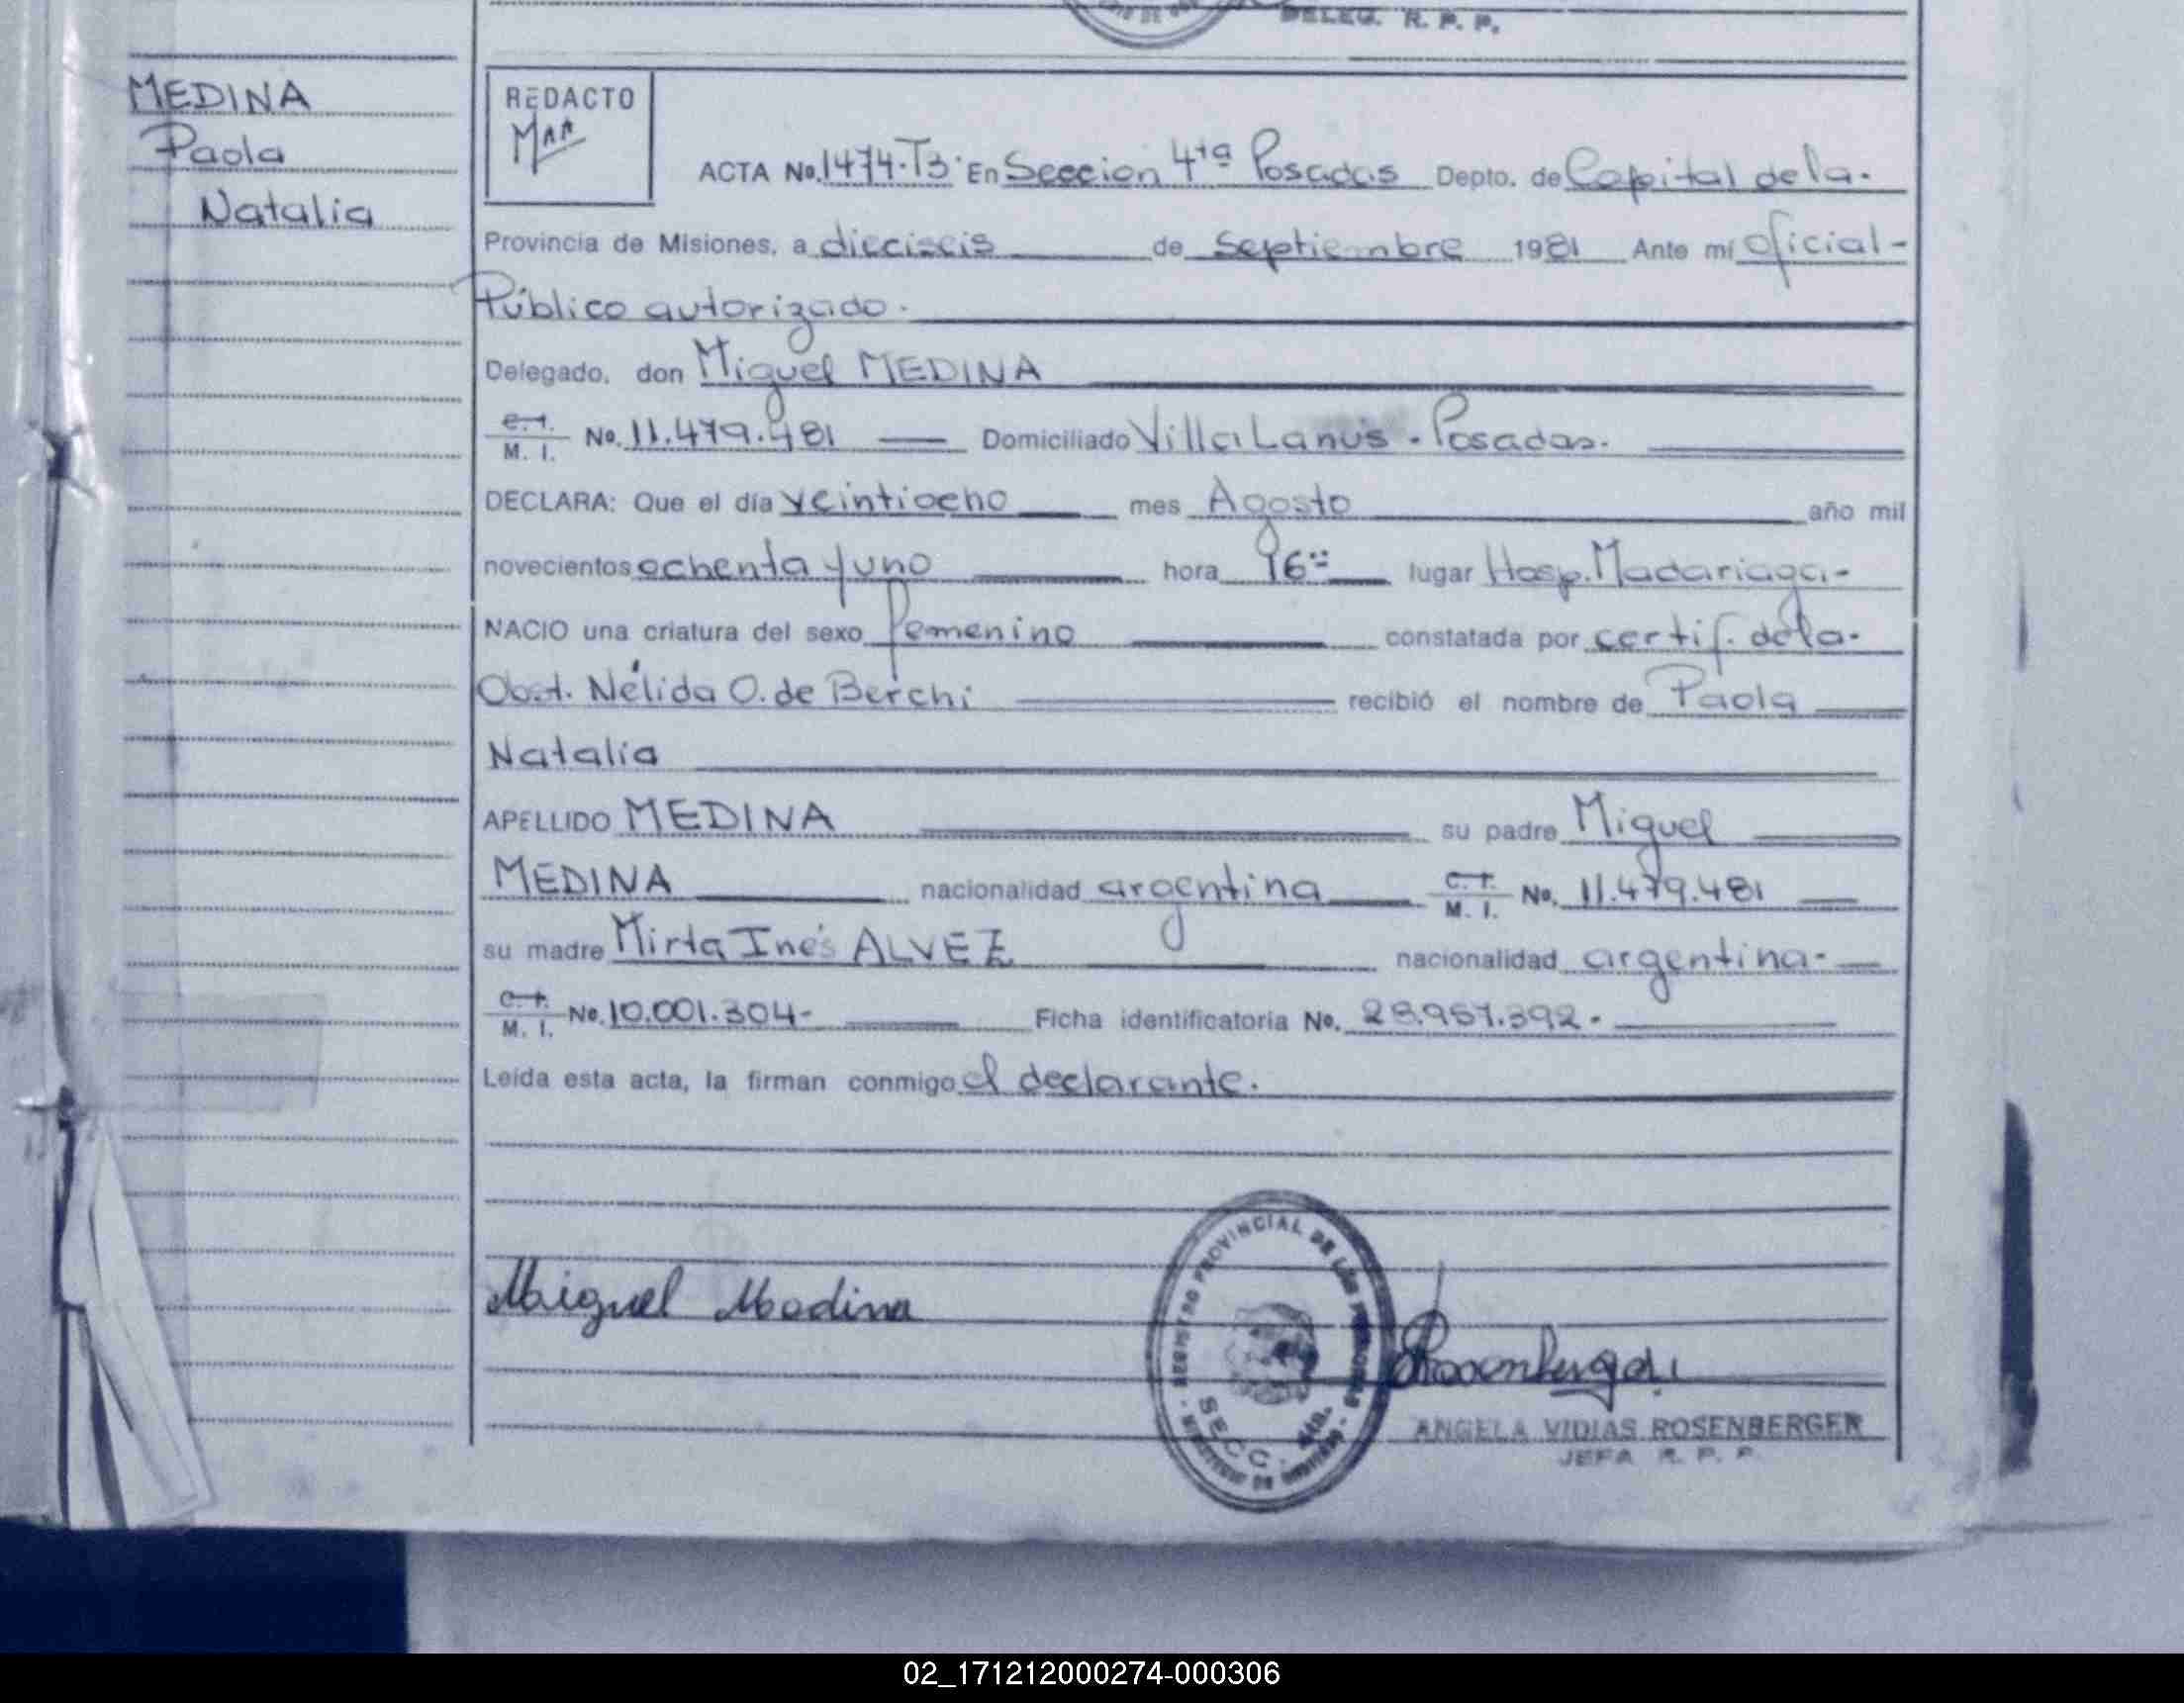 DELEG. R. P. P.
MEDINA
Paola
Natalia
REDACTO
ACTA No. 1474-T3 En Seccion 4ta Posadas Depto. de Capital de la.
Provincia de Misiones, a dieciseis de Septiembre 1981 Ante mí Oficial-
Público autorizado.
Delegado, don Miguel MEDINA
C.I. M. I. No. 11.479.481 Domiciliado Villa Lanús - Posadas.
DECLARA: Que el día veintiocho mes Agosto año mil
novecientos ochenta y uno hora 16 lugar Hosp. Madariaga-
NACIO una criatura del sexo femenino constatada por certif. de la.
Obst. Nélida O. de Berchi recibió el nombre de Paola
Natalia
APELLIDO MEDINA su padre Miguel
MEDINA nacionalidad argentina C.I. M. I. No. 11.479.481
su madre Mirta Inés ALVEZ nacionalidad argentina-
C.I. M. I. No. 10.001.304- Ficha identificatoria No. 28.957.392.
Leída esta acta, la firman conmigo el declarante.
Miguel Medina
REGISTRO PROVINCIAL DE LAS PERSONAS
SECC. 4ta.
ANGELA VIDIAS ROSENBERGER
JEFA R. P. P.
02_171212000274-000306